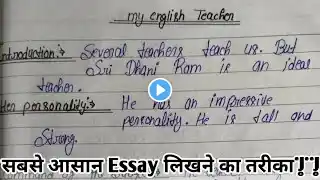 my english Teacher
Introduction:- Several teachers teach us. But
Sri Dhani Ram is an ideal
teacher.
Her personality:- He has an impressive
personality. He is tall and
Strong.
सबसे आसान Essay लिखने का तरीका!!